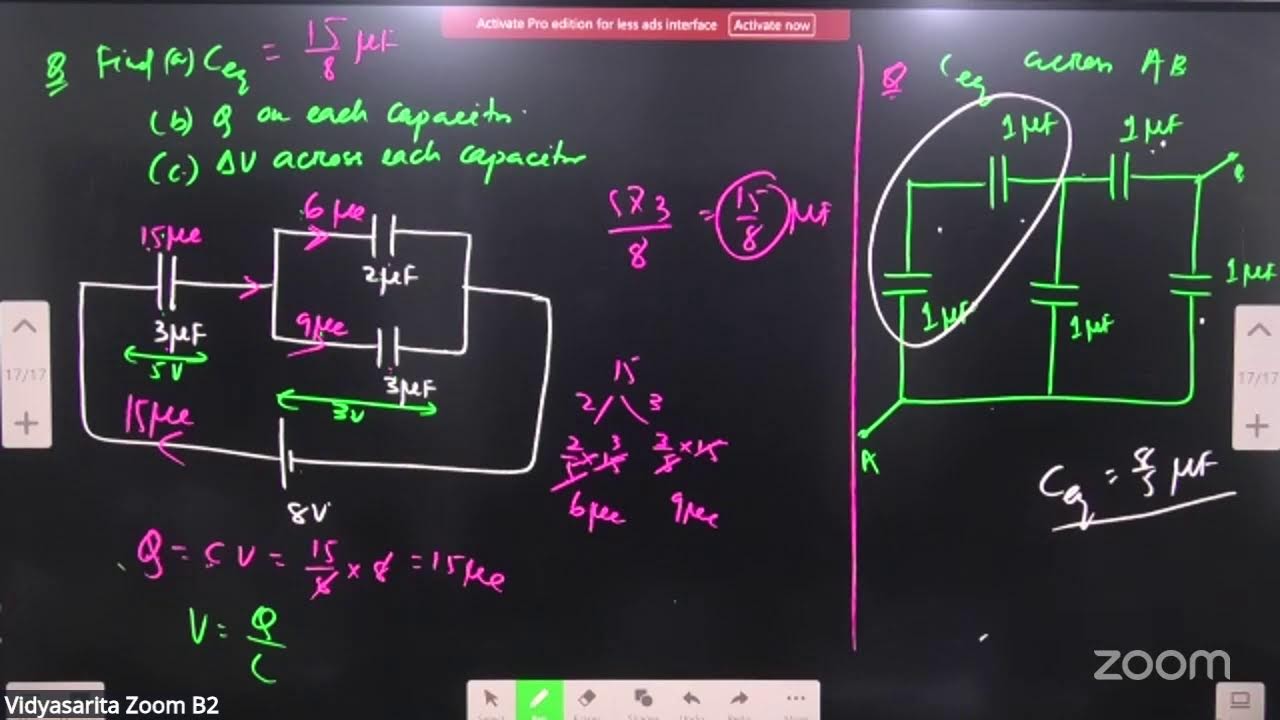 Activate Pro edition for less ads interface Activate now
Q Find (a) Ceq = 15/8 μF
(b) Q on each capacitor.
(c) ΔV across each capacitor
15μc
6μc
2μF
3μF
5V
9μc
3μF
3V
15μc
8V
Q = CV = 15/8 × 8 = 15μc
V = Q/C
5×3/8 = 15/8 μF
15
2 3
2/5 × 15 3/5 × 15
6μc 9μc
Q Ceq across AB
1μF 1μF
B
1μF 1μF 1μF
A
Ceq = 8/5 μF
17/17
17/17
zoom
Vidyasarita Zoom B2